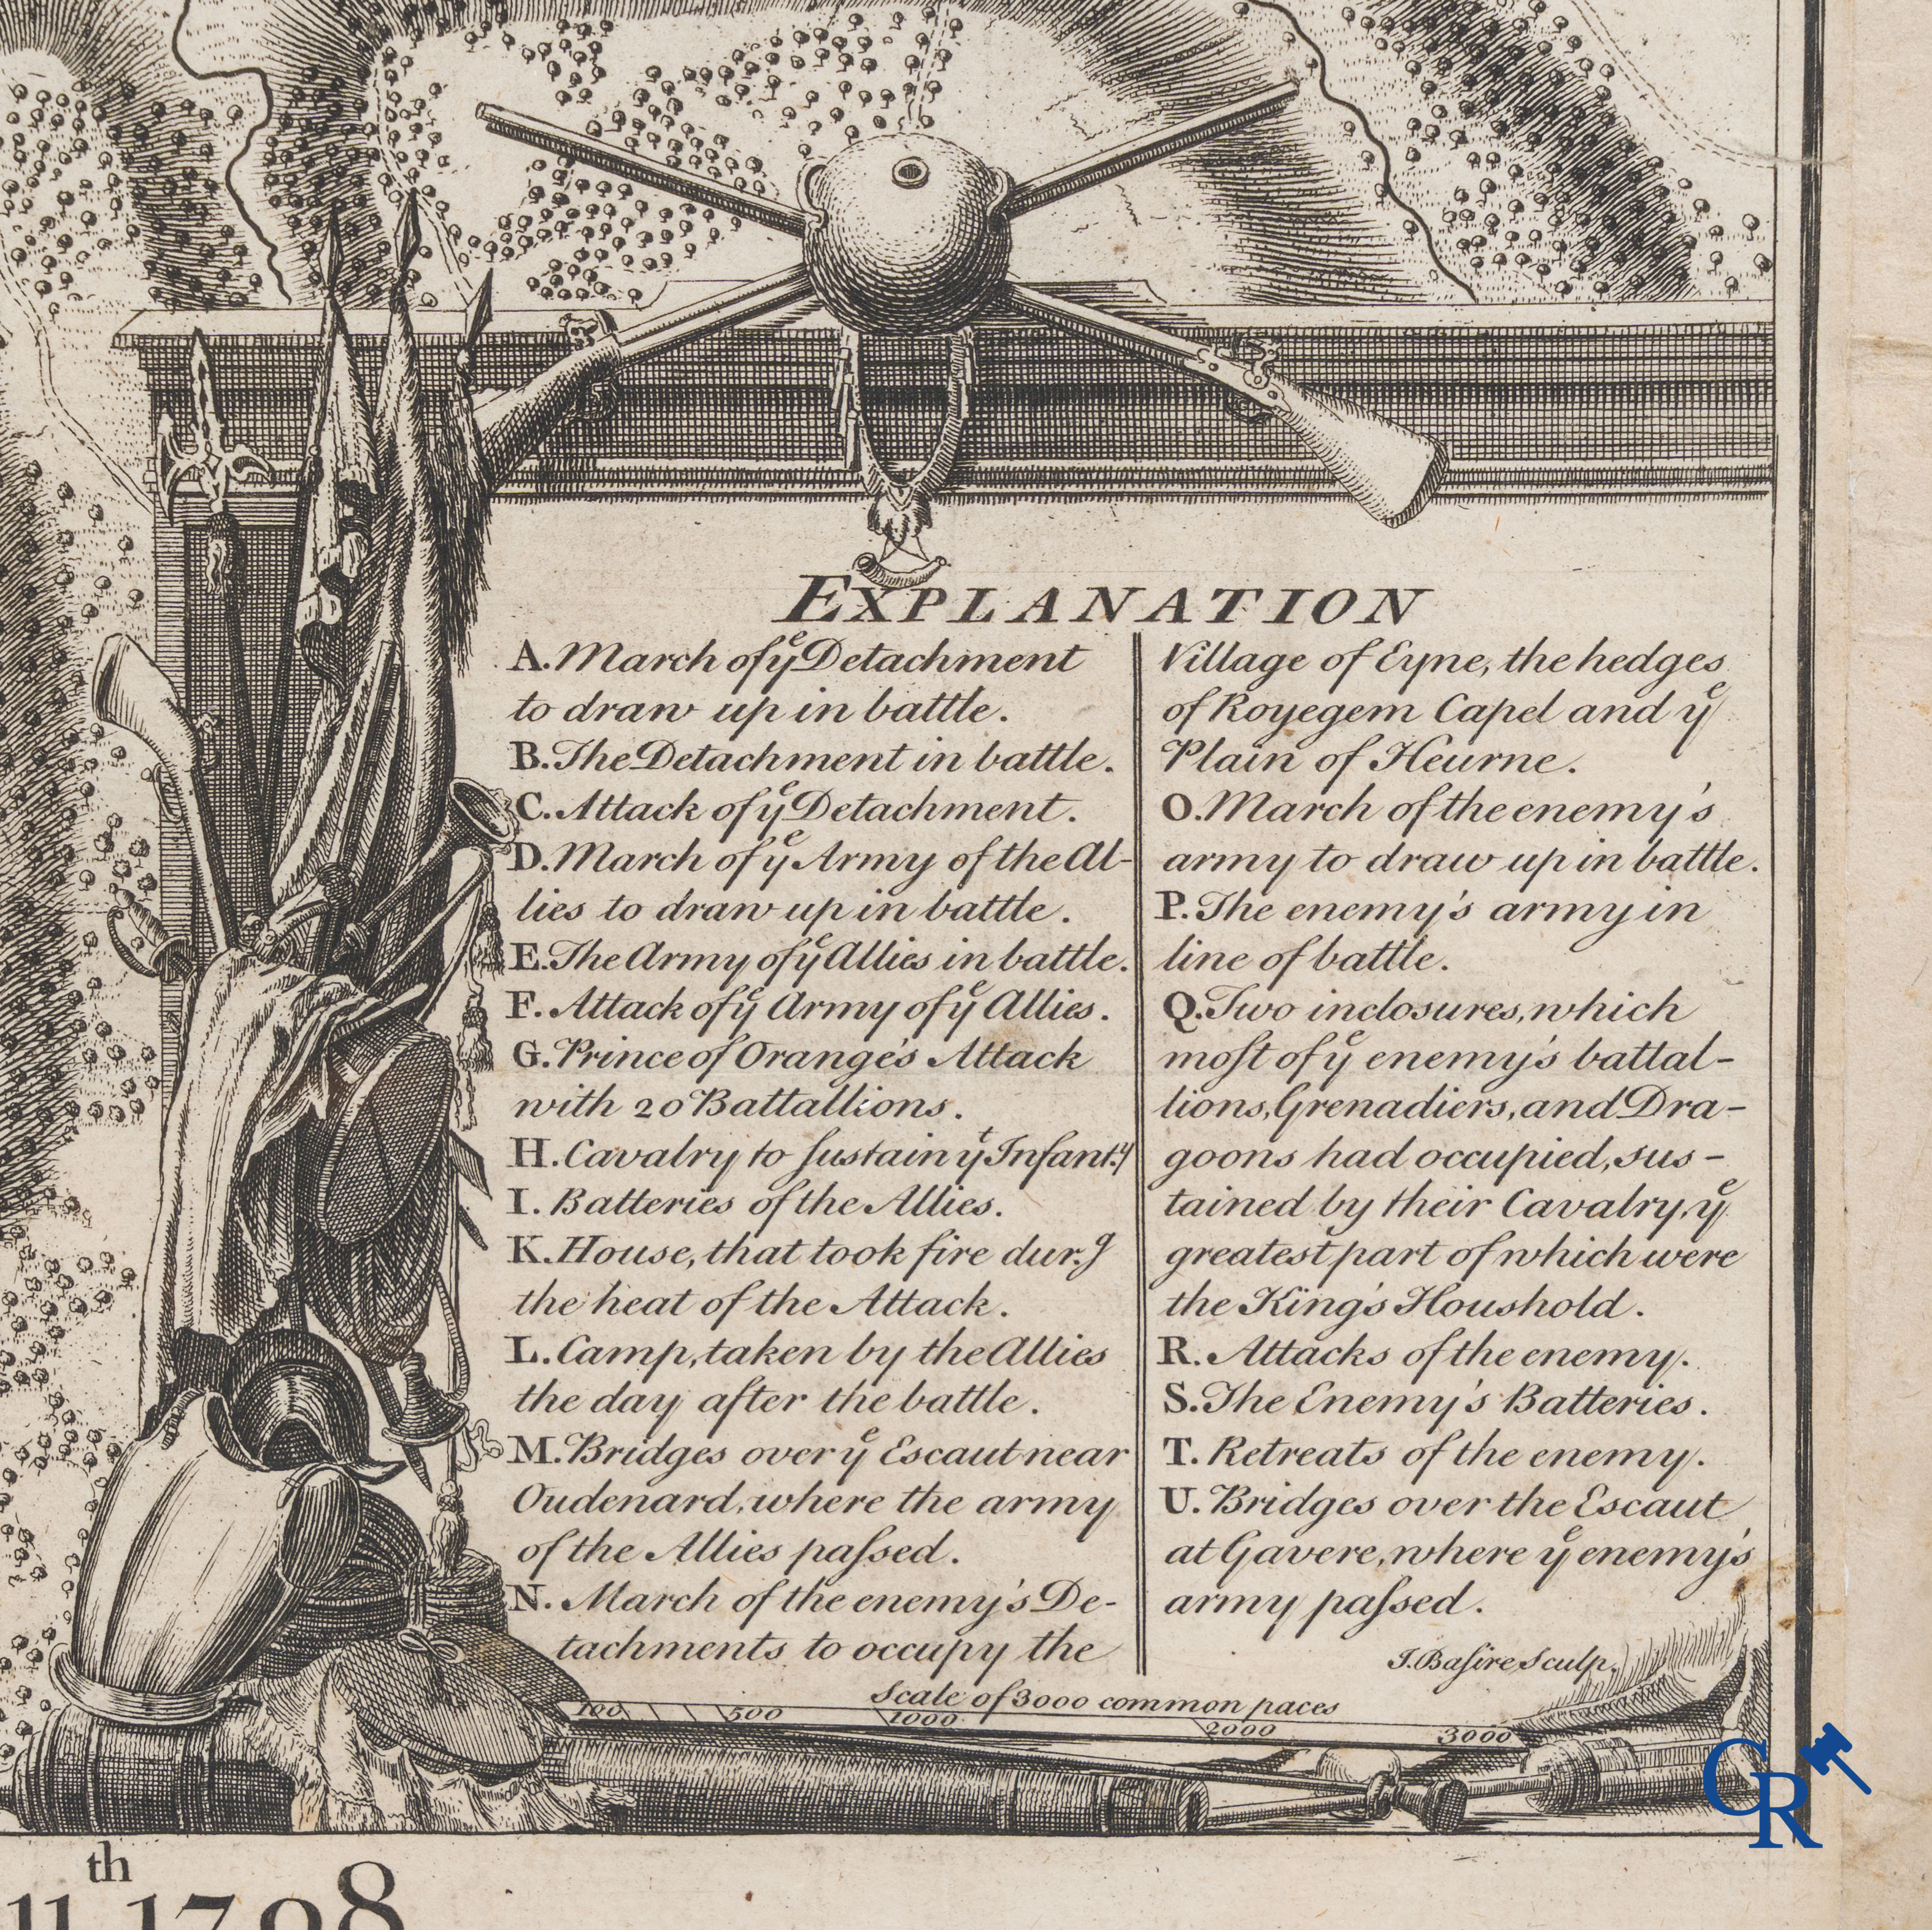 EXPLANATION
A. March of yͤ Detachment
to draw up in battle.
B. The Detachment in battle.
C. Attack of yͤ Detachment.
D. March of yͤ Army of the Al-
lies to draw up in battle.
E. The Army of yͤ Allies in battle.
F. Attack of yͤ Army of yͤ Allies.
G. Prince of Orange's Attack
with 20 Battallions.
H. Cavalry to ſustain yͭ Infant.y
I. Batteries of the Allies.
K. House, that took fire dur.g
the heat of the Attack.
L. Camp, taken by the Allies
the day after the battle.
M. Bridges over yͤ Escaut near
Oudenard, where the army
of the Allies paſsed.
N. March of the enemy's De-
tachments to occupy the
Village of Eyne, the hedges
of Royegem Capel and yͤ
Plain of Heurne.
O. March of the enemy's
army to draw up in battle.
P. The enemy's army in
line of battle.
Q. Two inclosures, which
moſt of yͤ enemy's battal-
lions, Grenadiers, and Dra-
goons had occupied, sus-
tained by their Cavalry, yͤ
greatest part of which were
the King's Houshold.
R. Attacks of the enemy.
S. The Enemy's Batteries.
T. Retreats of the enemy.
U. Bridges over the Escaut
at Gavere, where yͤ enemy's
army paſsed.
J. Baſire Sculp.
Scale of 3000 common paces
100 500 1000 2000 3000
CR
11th 1708